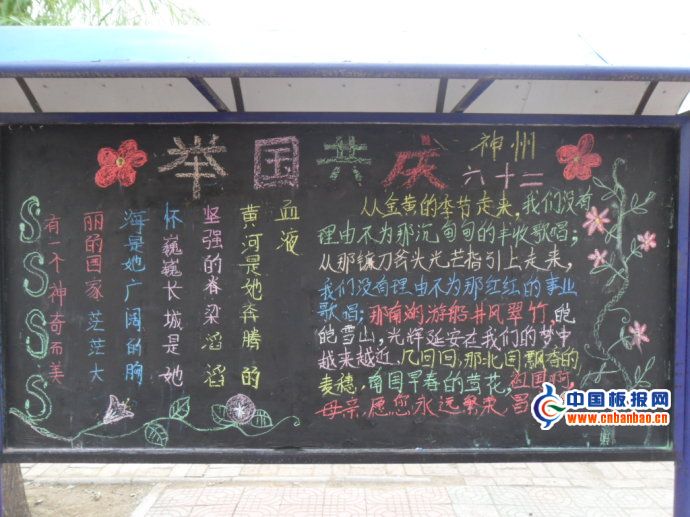 举国共庆
神州
六十二
有一个神奇而美
丽的国家 茫茫大
海是她广阔的胸
怀 巍巍长城是她
坚强的脊梁 滔滔
黄河是她奔腾的
血液
从金黄的季节走来,我们没有
理由不为那沉甸甸的丰收歌唱;
从那镰刀斧头光芒指引上走来,
我们没有理由不为那红红的事业
歌唱;那南湖游船井冈翠竹,皑
皑雪山,光辉延安在我们的梦中
越来越近,几回回,那北国飘香的
麦穗,南国早春的茶花,祖国啊,
母亲,愿您永远繁荣 昌
中国板报网
www.cnbanbao.cn